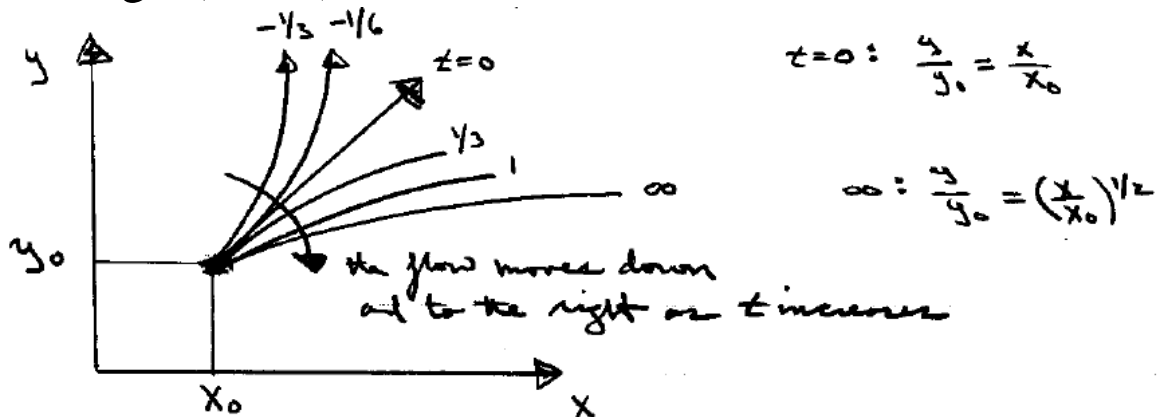 -1/3 -1/6
y
t=0
t=0: y/y₀ = x/x₀
1/3
1
∞
∞: y/y₀ = (x/x₀)^1/2
y₀
the flow moves down
and to the right as t increases
x₀
x